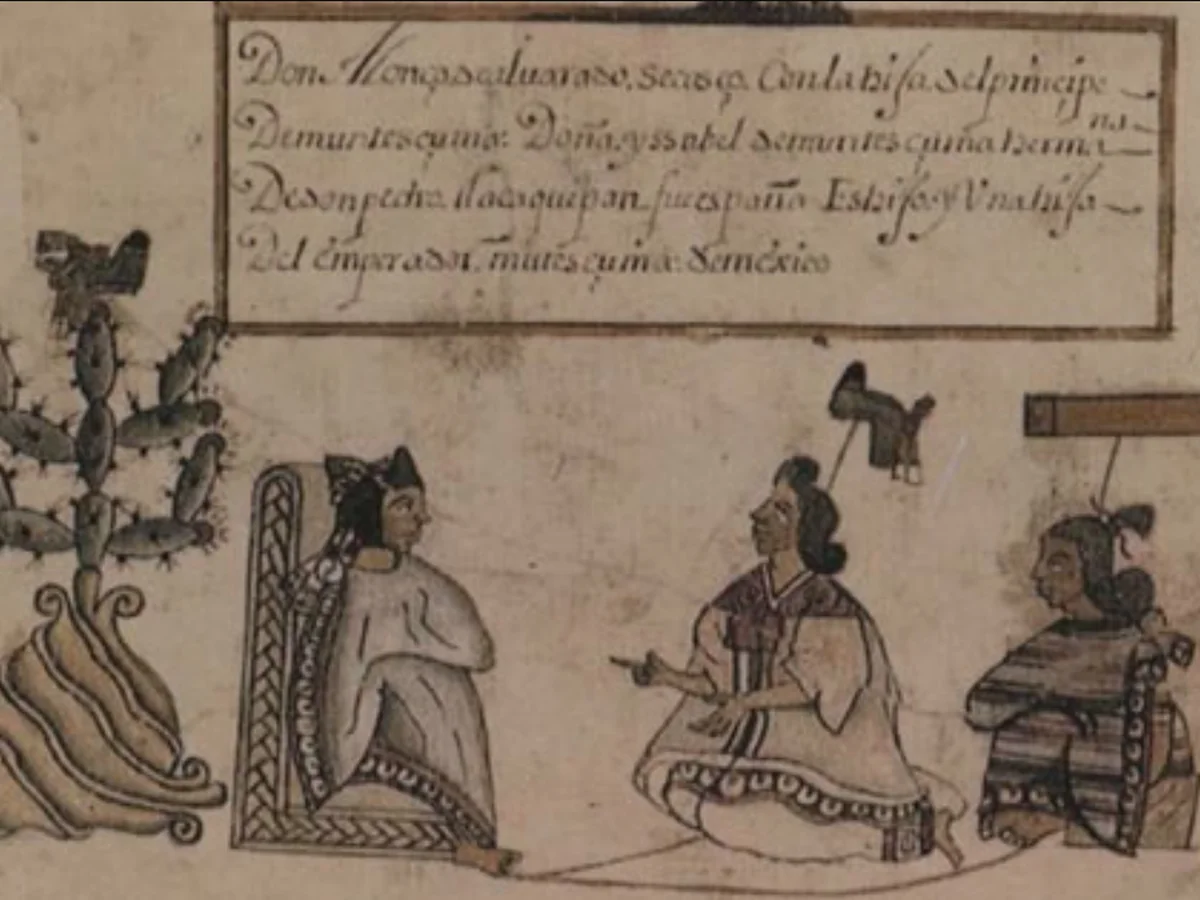 Don Alonço dealuarado. secasço. Conlahija. delprincipe
Demuntesçuma. Doña. yssabel demuntesçuma hermana
Dedonpedro. tlacaquepan fueespaña Eshijo. y Vnahija
Del emperador. mutesçuma. demexico